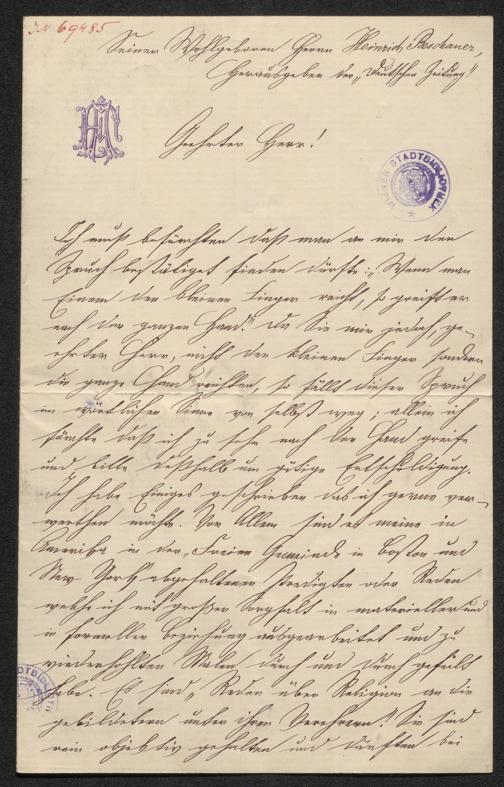 IN 69485
Seiner Wohlgeboren Herrn Heinrich Reschauer,
Herausgeber der „Deutschen Zeitung“
Geehrter Herr!
WIENER STADTBIBLIOTHEK
Ich muß befürchten daß man an mir den
Spruch bestätiget finden dürfte: „Wenn man
Einem den kleinen Finger reicht, so greift er
nach der ganzen Hand.“ Da Sie mir jedoch, ge-
ehrter Herr, nicht den kleinen Finger sondern
die ganze Hand reichten, so fällt dieser Spruch
im wörtlichen Sinne von selbst weg; allein ich
fürchte daß ich zu sehr nach der Hand greife
und bitte deßhalb um gütige Entschuldigung.
Ich habe Einiges geschrieben das ich gerne ver-
werthen möchte. Vor Allem sind es meine in
Amerika in der „Freien Gemeinde in Boston und
New York abgehaltenen Predigten oder Reden
welche ich mit großer Sorgfalt in materieller und
in formeller Beziehung ausgearbeitet und zu
wiederhohlten Malen durch und durch gefeilt
habe. Es sind „Reden über Religion an die
gebildetern unter ihren Verehrern“. Sie sind
rein objektiv gehalten und dürften bei